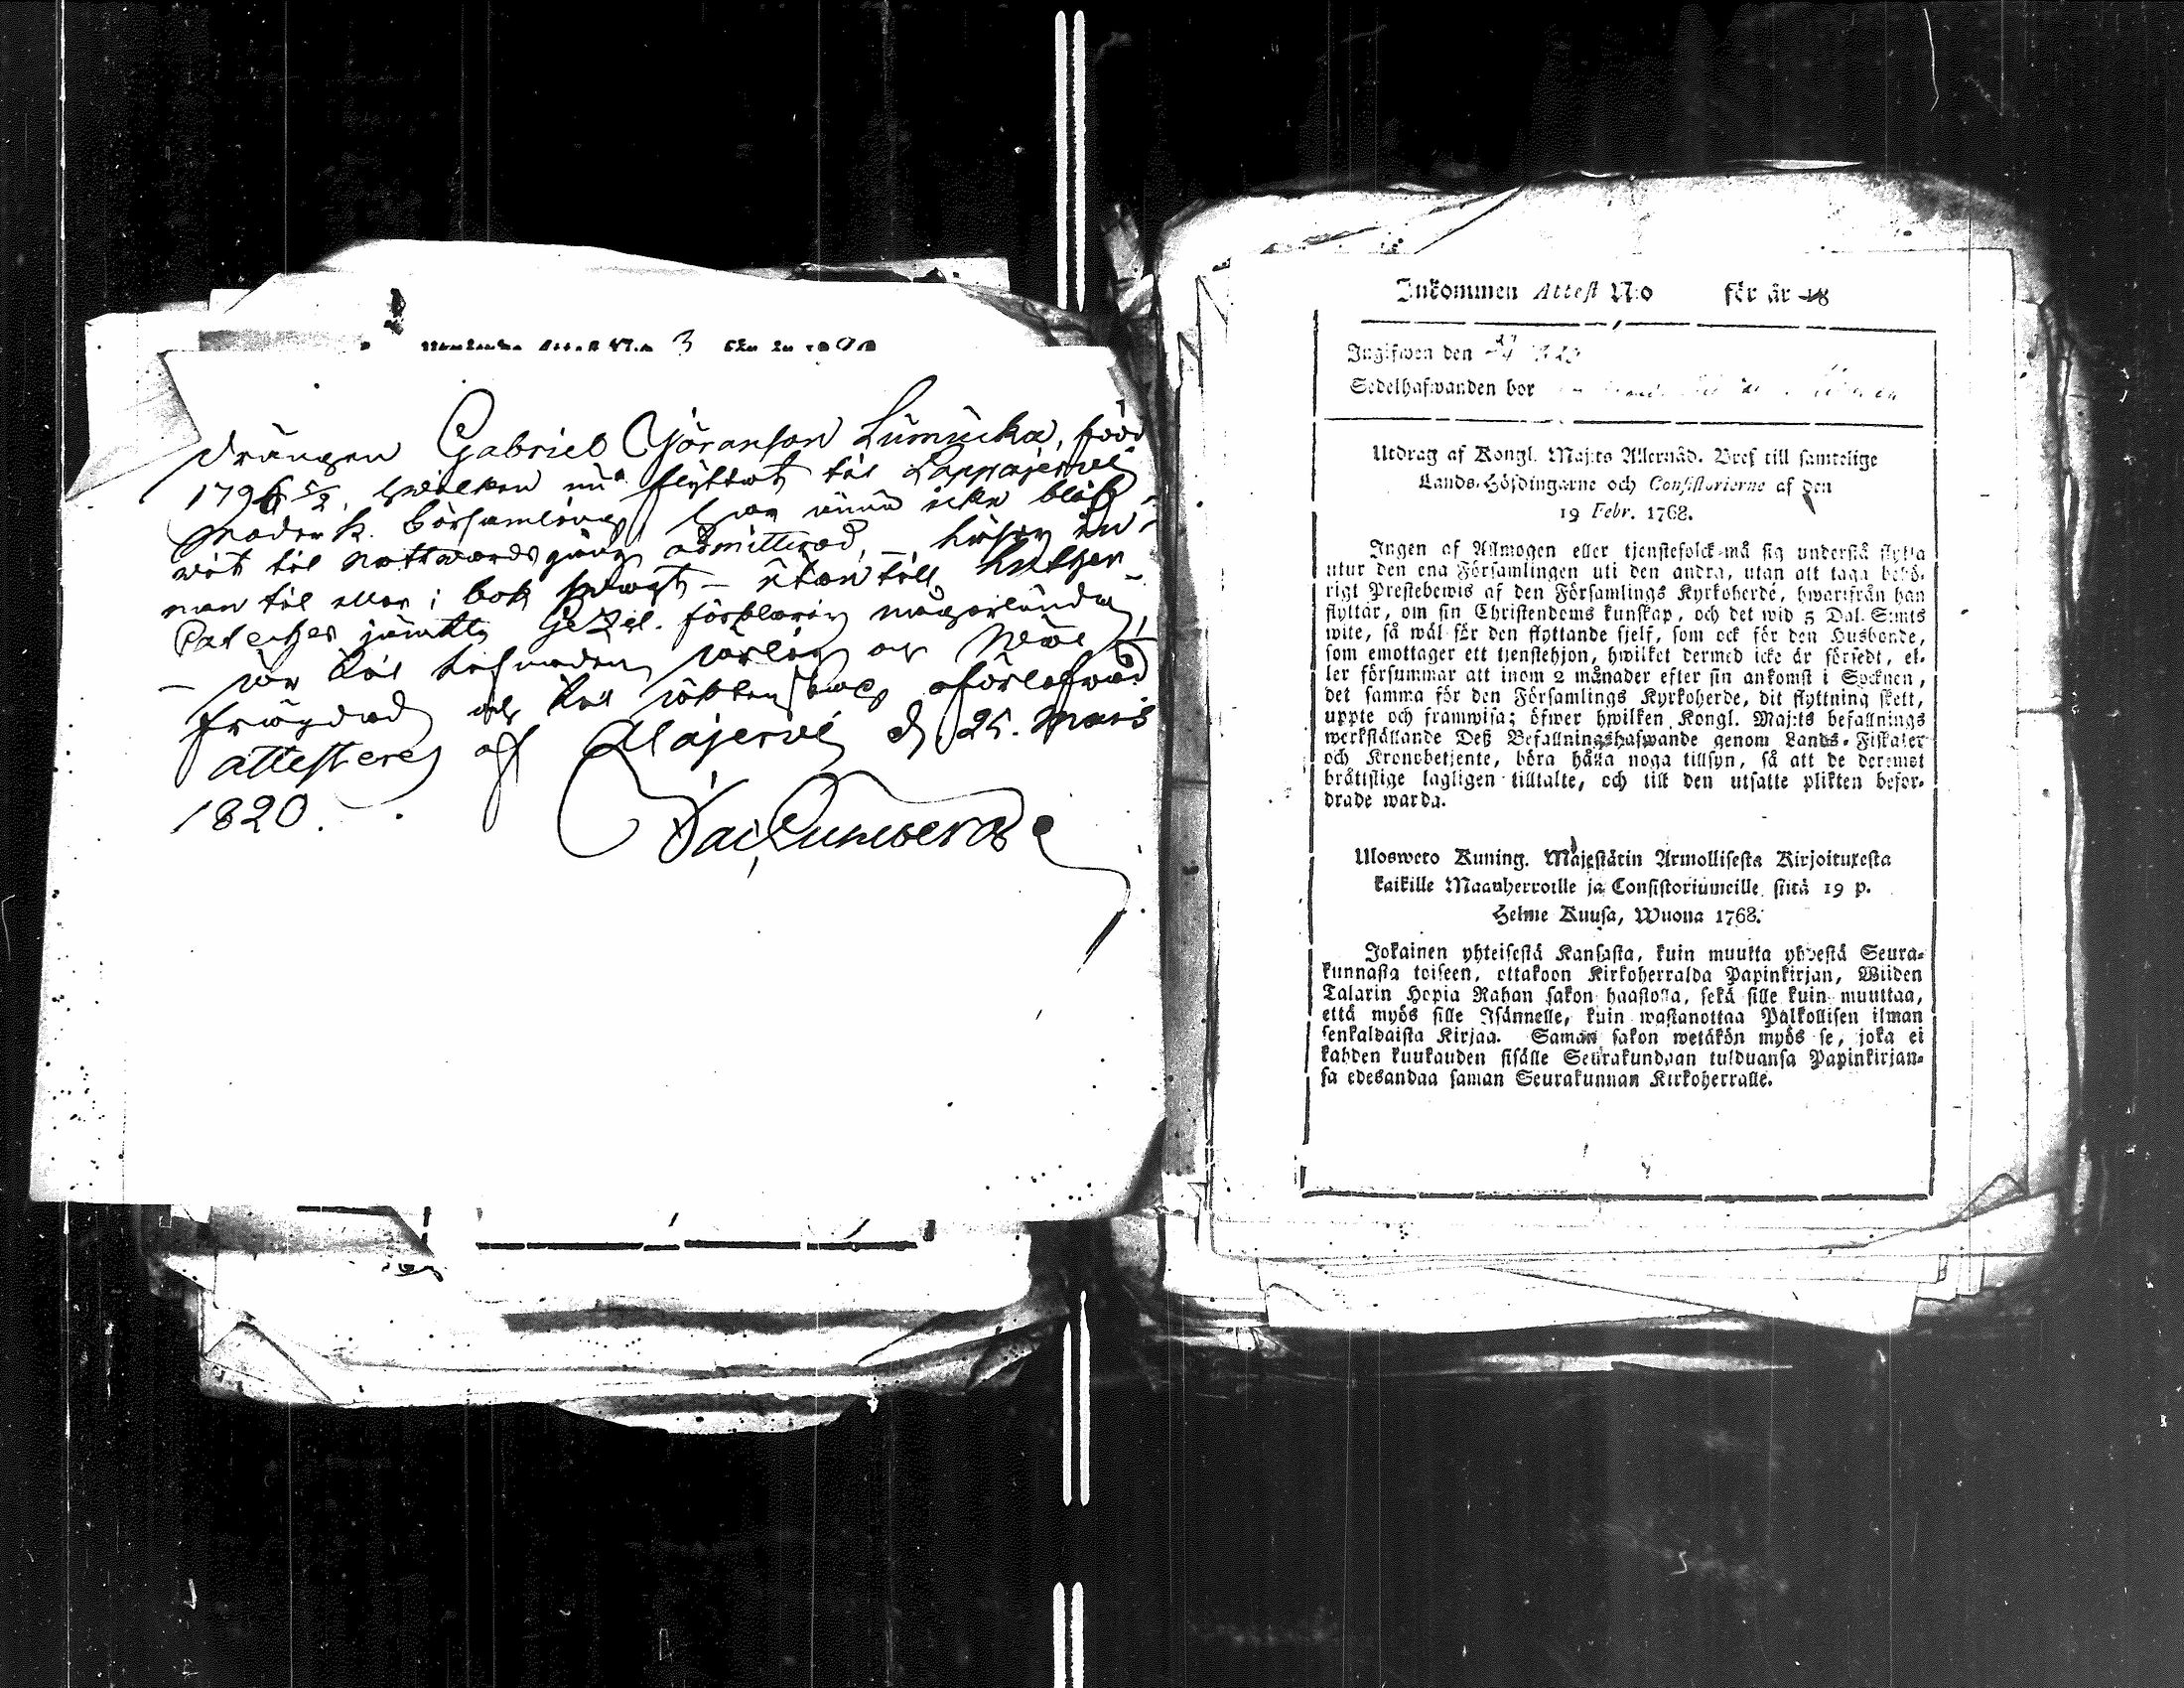 3
Drängen Gabriel Göranson Lumucka, född
1796 5/2, hwilken nu flyttat til Lappajerwi
Moder k. församling har ännu icke blif-
wit til nattwardsgång admitterad, – läser in-
nan til eller i bok swagt – utan till Luther
Catecheser jämte Gezel. förklaring någorlunda,
– är till lefnaden ärlig och
frägdad och til äktenskap oförlofwad
attesteres af Alajerwi d. 25. Mars
1820.
Inkommen Attest N:o för år 18
Ingifwen den
Sedelhafwanden bor
Utdrag af Kongl. Maj:ts Allernåd. Bref till samtelige
Lands-Höfdingarne och Consistorierne af den
19 Febr. 1768.
Ingen af Allmogen eller tjenstefolck må sig understå flytta
utur den ena Församlingen uti den andra, utan att taga behö-
rigt Prestebewis af den Församlings Kyrkoherde, hwarifrån han
flyttar, om sin Christendoms kunskap, och det wid 5 Dal. S:mts
wite, så wäl för den flyttande sjelf, som ock för den Husbonde,
som emottager ett tjenstehjon, hwilket dermed icke är försedt, el-
ler försummar att inom 2 månader efter sin ankomst i Socknen,
det samma för den Församlings Kyrkoherde, dit flyttning skett,
uppte och framwisa; öfwer hwilken Kongl. Maj:ts befallnings
werkställande Deß Befallningshafwande genom Lands-Fiskaler
och Kronobetjente, böra hålla noga tillsyn, så att de deremot
bråttslige lagligen tilltalte, och till den utsatte plikten befor-
drade warda.
Ulosweto Kuning. Majestätin Armollisesta Kirjoituxesta
kaikille Maanherroille ja Consistoriumeille siitä 19 p.
Helme Kuusa, Wuona 1768.
Jokainen yhteisestä Kansasta, kuin muutta yhdestä Seura-
kunnasta toiseen, ottakoon Kirkoherralda Papinkirjan, Wiiden
Talarin Hopia Rahan sakon haastolla, sekä sille kuin muuttaa,
että myös sille Isännelle, kuin wastanottaa Palkollisen ilman
senkaldaista Kirjaa. Saman sakon wetäkön myös se, joka ei
kahden kuukauden sisälle Seurakundaan tulduansa Papinkirjan-
sa edesandaa saman Seurakunnan Kirkoherralle.